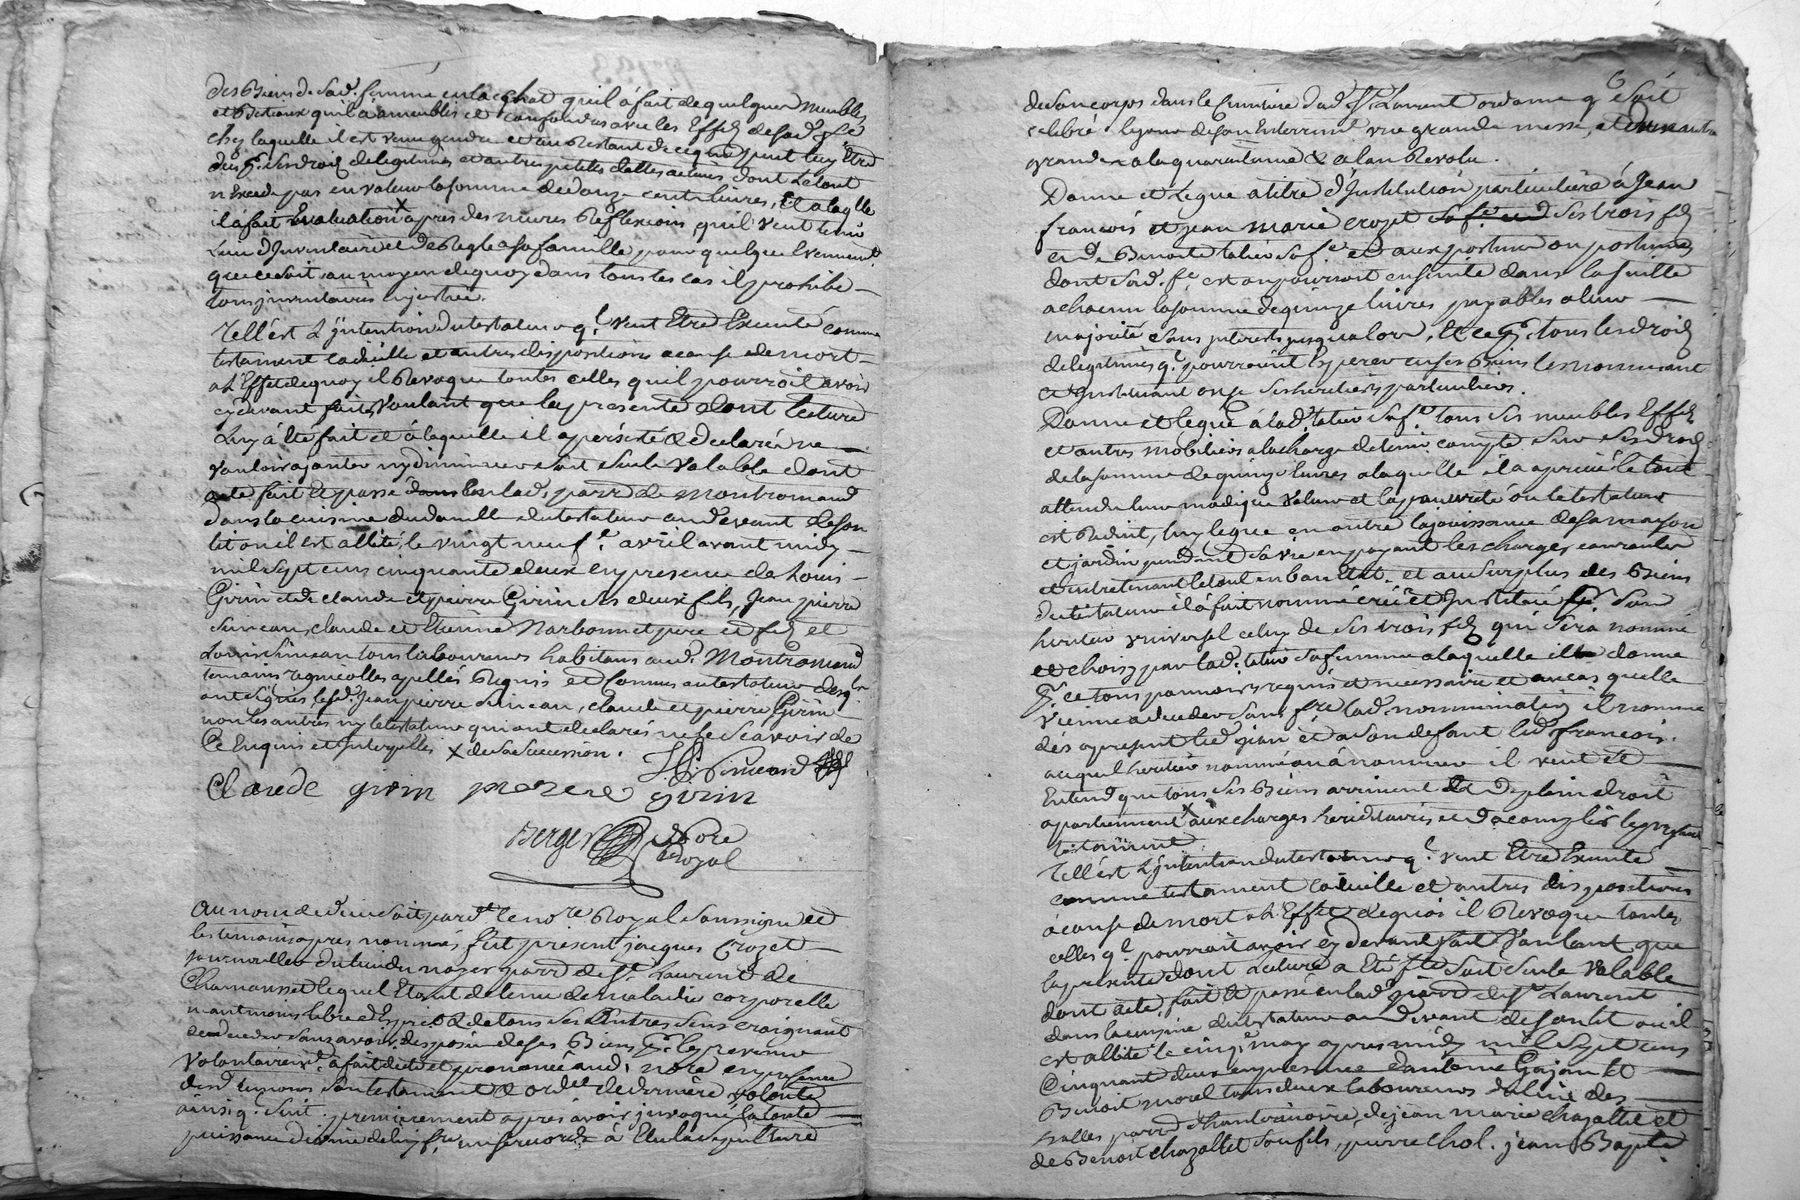 des Biens de sad. femme en lachat quil a fait de quelques meubles
et Bestiaux quil a ameublés et confondus avec les Effets de sad. fe
chez laquelle il est venu gendre et au Restant de ce qui peut luy Etre
deu pr. ses droits de legitime et autres petites dettes actives dont le tout
n'Excede pas en valeur la somme de douze cent livres, Et a laqlle
il a fait Evaluation x apres des mures Reflexions quil veut tenir
Lieu d'Inventaire et de Regle a sa famille pour quelque Evenement
que ce soit au moyen de quoy dans tous les cas il prohibe
tous inventaires en justice.
Tell'est L'intention du testateur q.l veut Etre Executé comme
testament codicille et autres dispositions a cause de mort
a L'Effet de quoy il Revoque toutes celles quil pourroit avoir
cydevant faites, Voulant que la presente dont lecture
Luy a Eté fait et a laquelle il a persisté & declaré ne
vouloir ajouter ny diminuer soit seule valable dont
acte fait et passé en lad. parr. de Montromand
dans la cuisine du domille du testateur au devant de son
lit ou il est allité, le vingt neuf e. avril avant midy
mil sept cens cinquante deux en presence de Louis
Girin et de claude et pierre Girin ses deux fils, Jean pierre
Simean, claude et Etienne Narbonnet pere et fils et
Louis Simean tous laboureurs habitans aud. Montromand
temoins regnicolles apellés Requis et connus au testateur desqls
ont signés lesd. Jean pierre Simean, claude et pierre Girin
non les autres ny le testateur qui ont declarés ne le scavoir de
Ce Enquis et Interpellés x de sa succession.
Claude girin pierre girin
Berger nore
Royal
Au nom de dieu soit pardt. le nore Royal soussigné et
les temoins apres nommés fut present jacques Crozet
journallier du lieu du noyer parr. de St. Laurent de
Chamousset lequel Etant detenu de maladie corporelle
neantmoins libre d'Esprit & de tous ses autres sens craignant
de deceder sans avoir disposé de ses Biens pr. les prevenir
volontairemt. a fait dicté et prononcé aud. nore en presence
desd. temoins son testament & ordce de derniere volonté
ainsi q. suit. premierement apres avoir invoqué la toute
puissance divine de luy fre. misericorde a Elu la sepulture
6
de son corps dans le cimetiere dud. St. Laurent ordonne q. soit
celebré le jour de son Enterremt. une grande messe, et une autre
grande a la quarantaine & a lan Revolu.
Donne et Legue a titre d'Institution particuliere à Jean
françois et jean marie crozet ses trois fils
et de Benoite tatier sa fe. et aux postume ou postumes
dont sad. fe. est ou pourroit enceinte dans la suitte
a chacun la somme de quinze livres payables a leur
majorité sans interets jusqualors, Et ce pr. tous les droits
de legitimes q. pourroient Esperer en ses Biens les nommant
et Instituant en ce ses heritiers particuliers.
Donne et legue a lad. tatier sa fe. tous ses meubles Effets
et autres mobiliers a la charge de tenir compte sur ses droits
de la somme de quinze livres a laquelle il a aprecié le tout
attendu leur modique valeur et la pauvreté ou le testateur
est Reduit, luy legue en outre la jouissance de sa maison
et jardin pendant sa vie en payant les charges courantes
et entretenant le tout en bon Etat. et au surplus des Biens
du testateur il a fait nommé créé et Institué pr. son
heritier universel celuy de ses trois fils qui sera nommé
et choisy par lad. tatier sa femme a laquelle il donne
pr. ce tous pouvoirs requis et necessaire et au cas quelle
vienne a deceder sans fre. lad. nomination il nomme
dés apresent led. jean et a son defaut led. françois.
auquel heritier nommé ou a nommer il veut et
Entend que tous ses Biens arrivent et de plein droit
apartiennent x aux charges hereditaires et d'acomplir le present
testament.
Tell'est L'jntention du testateur q.l veut Etre Executé
comme testament codicille et autres dispositions
à cause de mort a L'Effet de quoi il Revoque toutes
celles q.l pourroit avoir cy devant fait Voulant que
la presente dont Lecture a Eté fte soit seule valable
dont acte. fait et passé en lad. parr. de St. Laurent
dans la cuisine du testateur au devant de son lit ou il
est allité le cinq e. may apres midy mil sept cens
Cinquante deux en presence d'antoine Gajan et
Benoit morel tous deux laboureurs du lieu des
halles parr. d'hauterivoire, de jean marie chazottet et
de Benoit chazottet son fils, pierre chol. jean Baptte